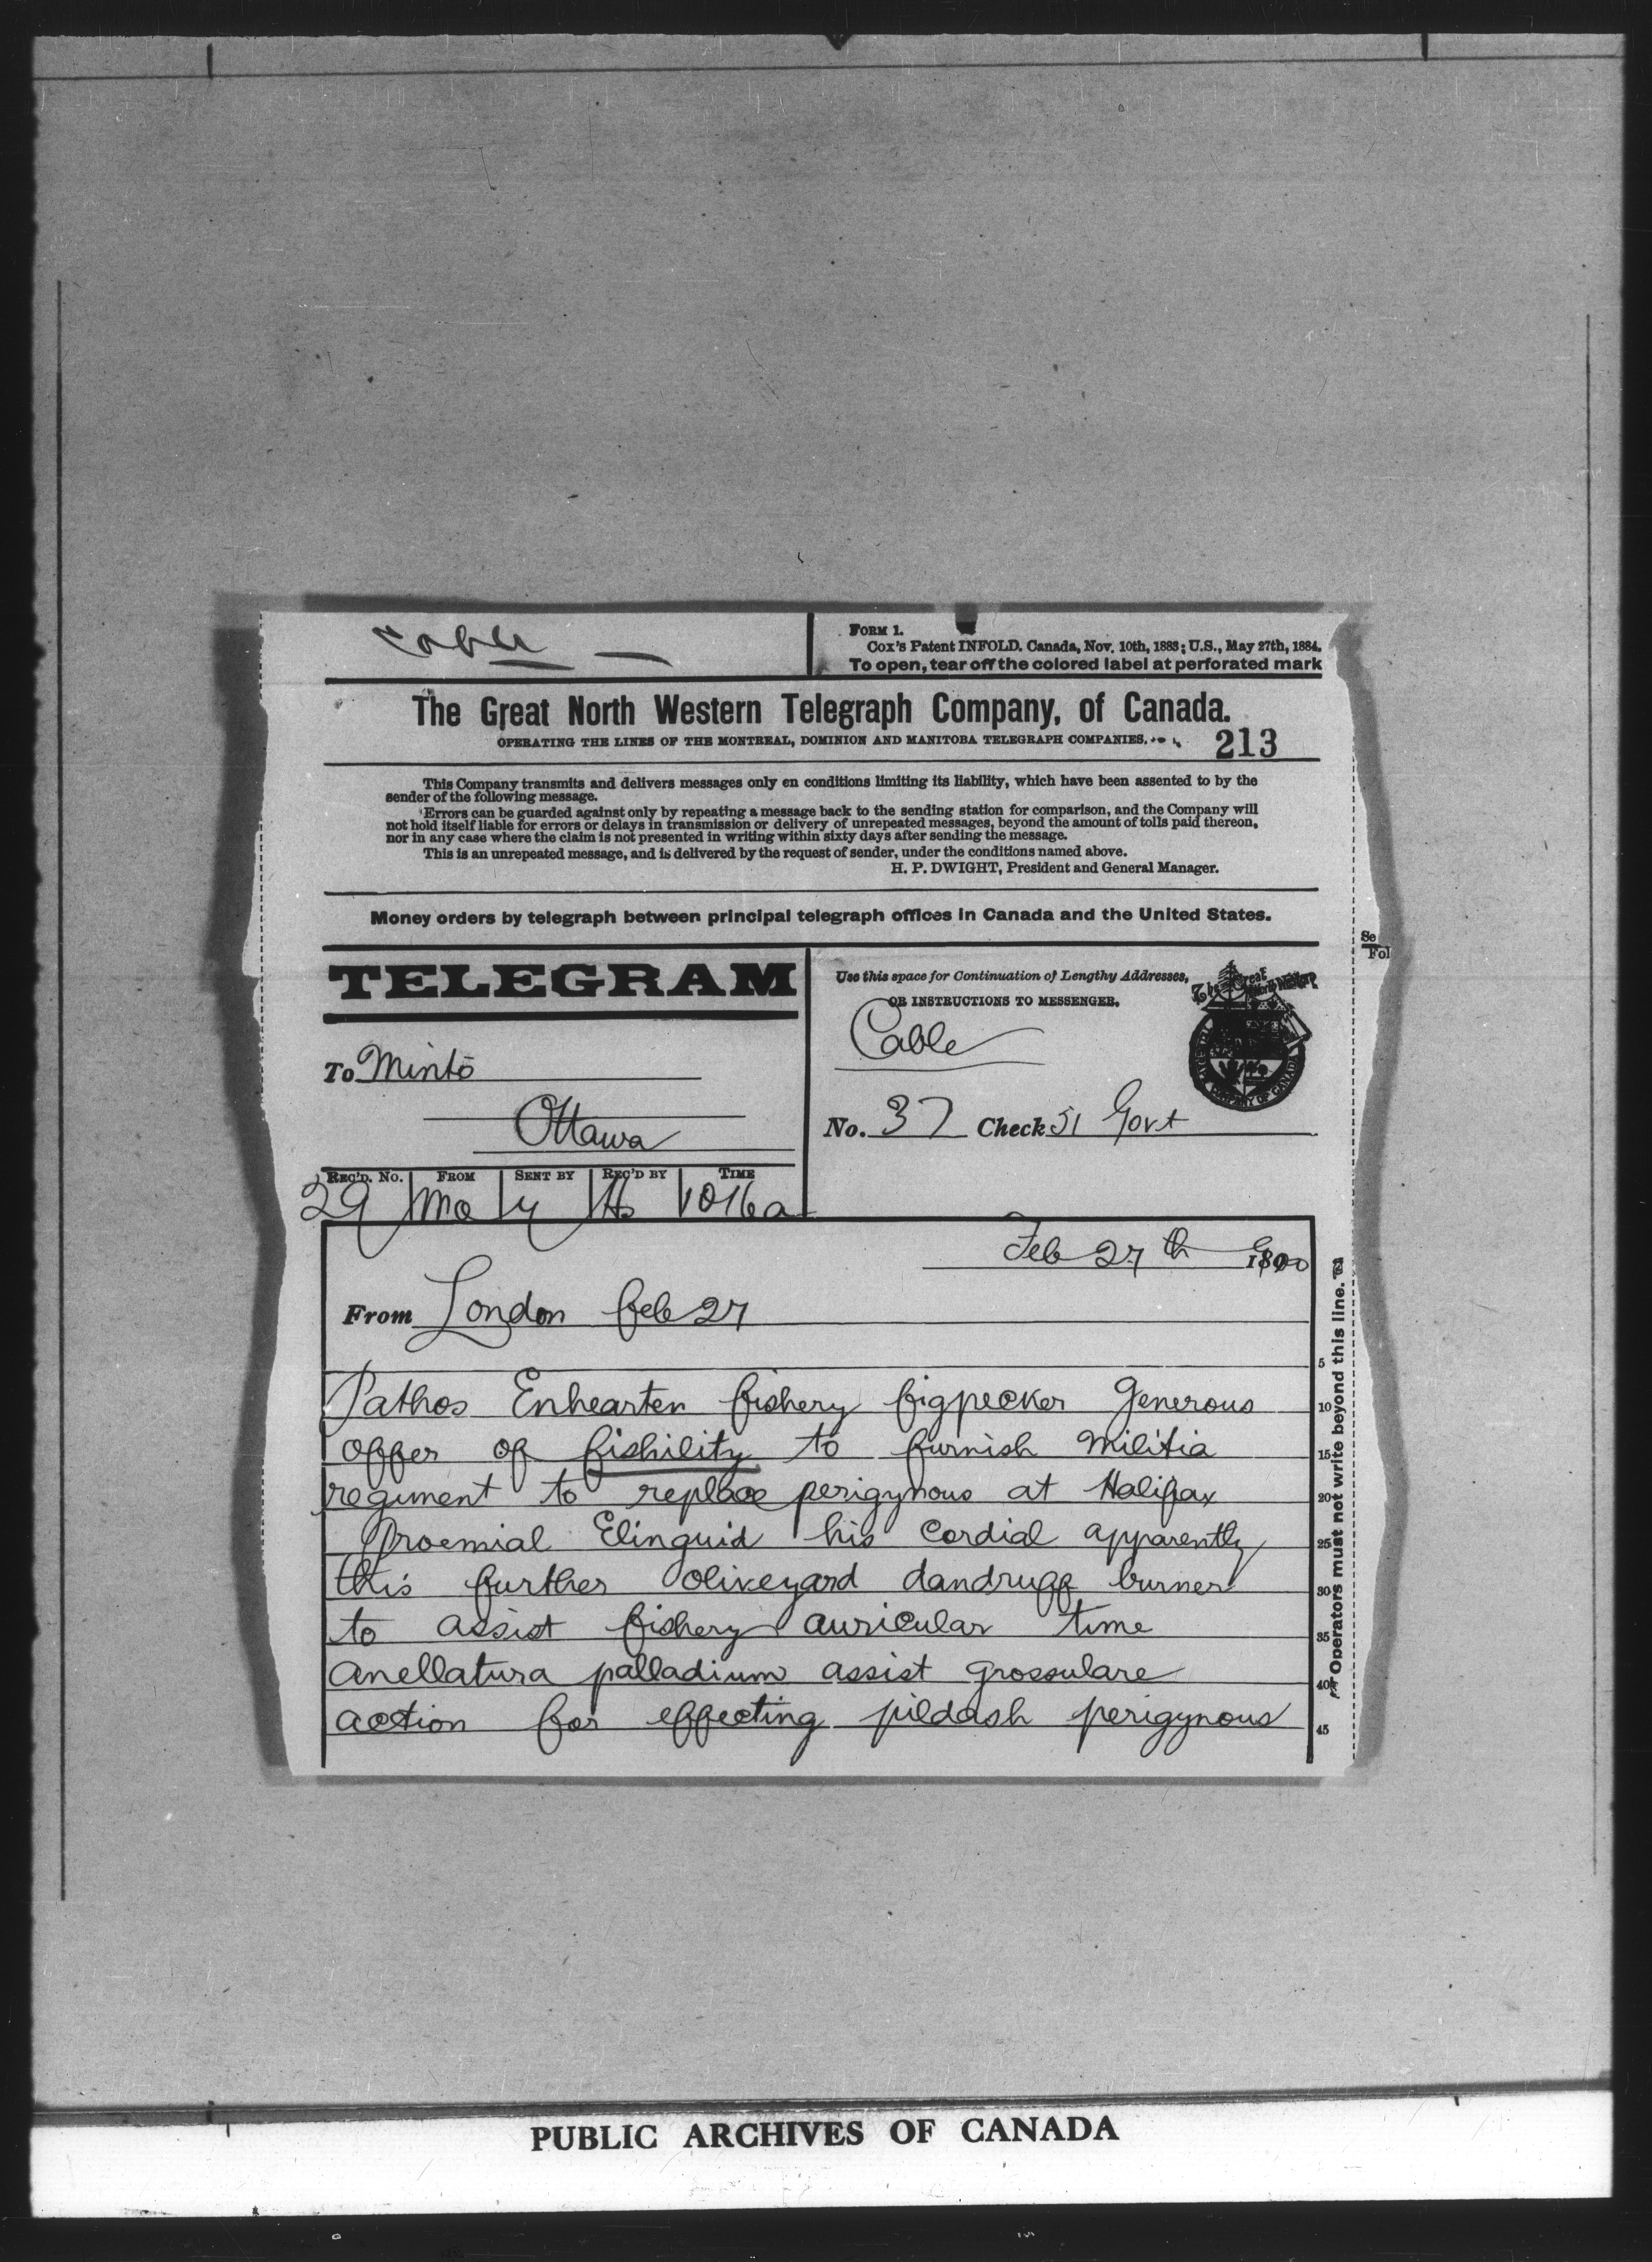 Cable
FORM 1.
Cox's Patent INFOLD. Canada, Nov. 10th, 1883; U.S., May 27th, 1884.
To open, tear off the colored label at perforated mark
The Great North Western Telegraph Company, of Canada.
OPERATING THE LINES OF THE MONTREAL, DOMINION AND MANITOBA TELEGRAPH COMPANIES.
213
This Company transmits and delivers messages only on conditions limiting its liability, which have been assented to by the
sender of the following message.
Errors can be guarded against only by repeating a message back to the sending station for comparison, and the Company will
not hold itself liable for errors or delays in transmission or delivery of unrepeated messages, beyond the amount of tolls paid thereon,
nor in any case where the claim is not presented in writing within sixty days after sending the message.
This is an unrepeated message, and is delivered by the request of sender, under the conditions named above.
H. P. DWIGHT, President and General Manager.
Money orders by telegraph between principal telegraph offices in Canada and the United States.
Se
Fol
TELEGRAM
Use this space for Continuation of Lengthy Addresses,
OR INSTRUCTIONS TO MESSENGER.
The Great North Western
Cable
To Minto
Ottawa
No. 37 Check 51 Govt
REC'D. No. FROM SENT BY REC'D BY TIME
29 Mo 1016a
Feb 27th 1900
From London feb 27
Pathos Enhearten fishery figpecker Generous
offer of fishility to furnish Militia
regiment to replace perigynous at Halifax
Proemial Elinguid his cordial apparently
this further oliveyard dandruff burner
to assist fishery auricular time
anellatura palladium assist grossulare
action for effecting pildash perigynous
5
10
15
20
25
30
35
40
45
Operators must not write beyond this line.
PUBLIC ARCHIVES OF CANADA